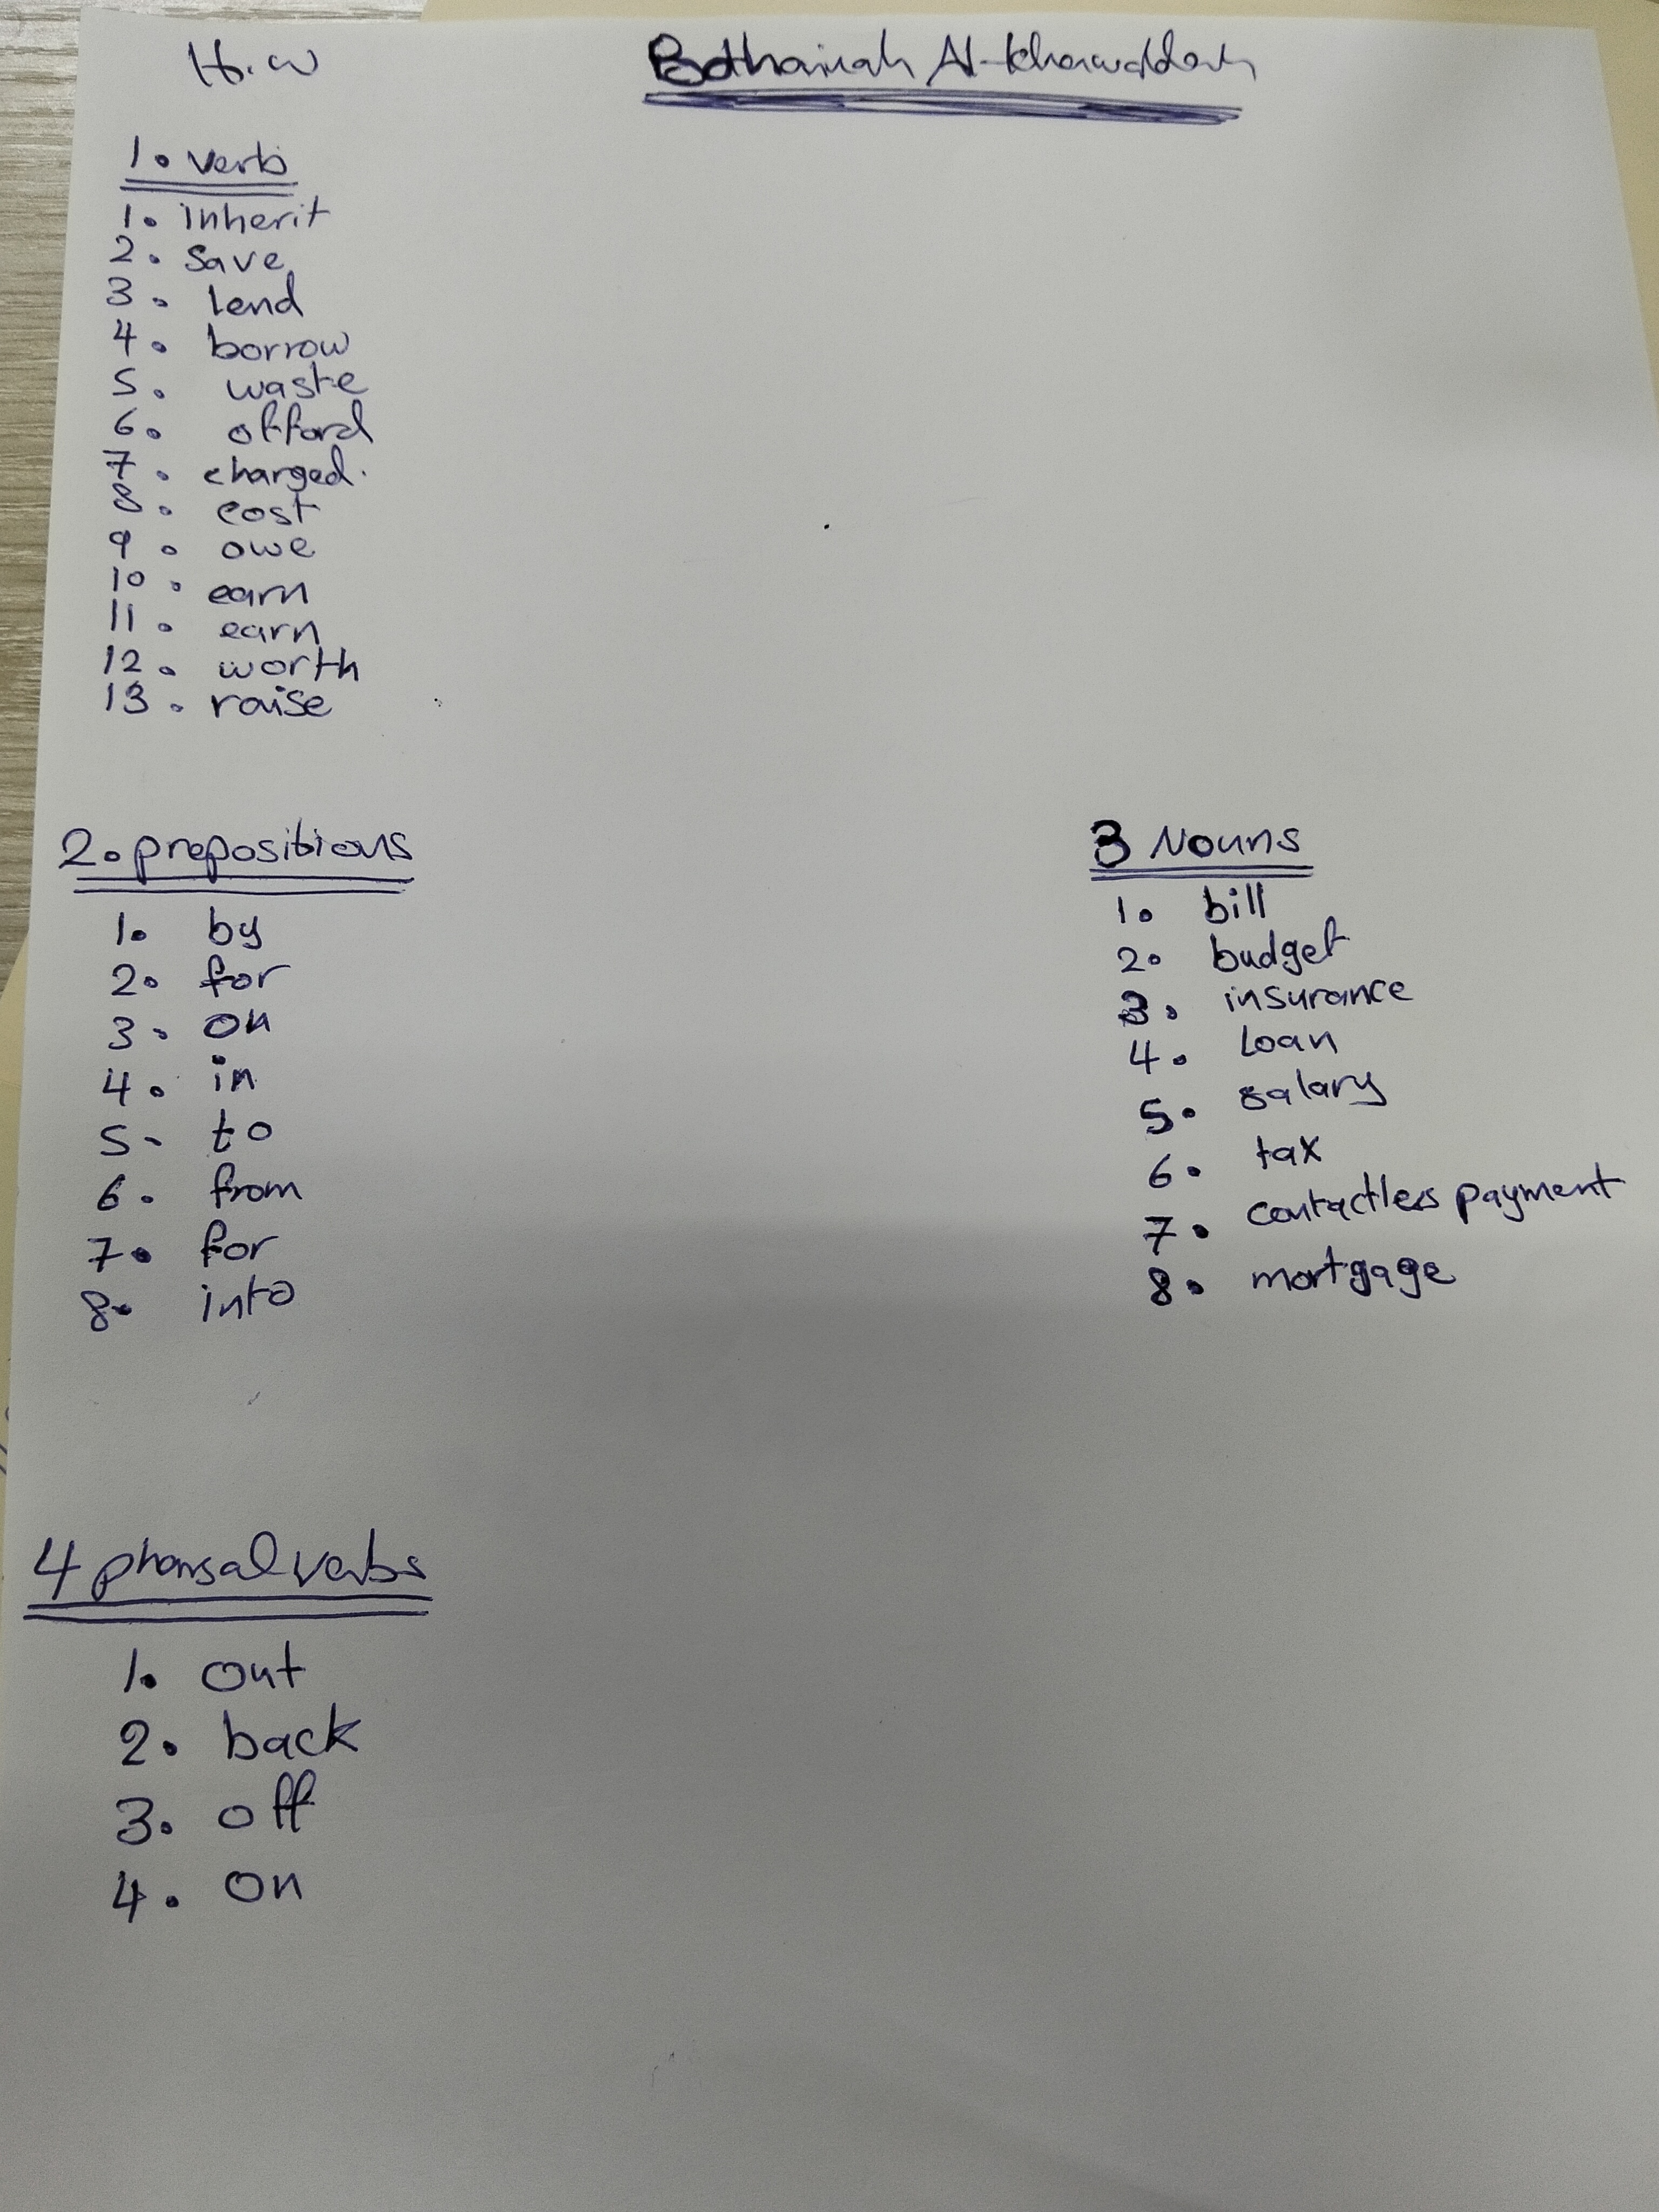 H.W
Bothainah Al-khawaldeh
1. verb
1. inherit
2. save
3. lend
4. borrow
5. waste
6. offord
7. charged.
8. cost
9. owe
10. earn
11. earn
12. worth
13. raise
2. prepositions
1. by
2. for
3. on
4. in
5- to
6. from
7. for
8. into
3 Nouns
1. bill
2. budget
3. insurance
4. Loan
5. salary
6. tax
7. contactless payment
8. mortgage
4 pharsal verbs
1. out
2. back
3. off
4. on